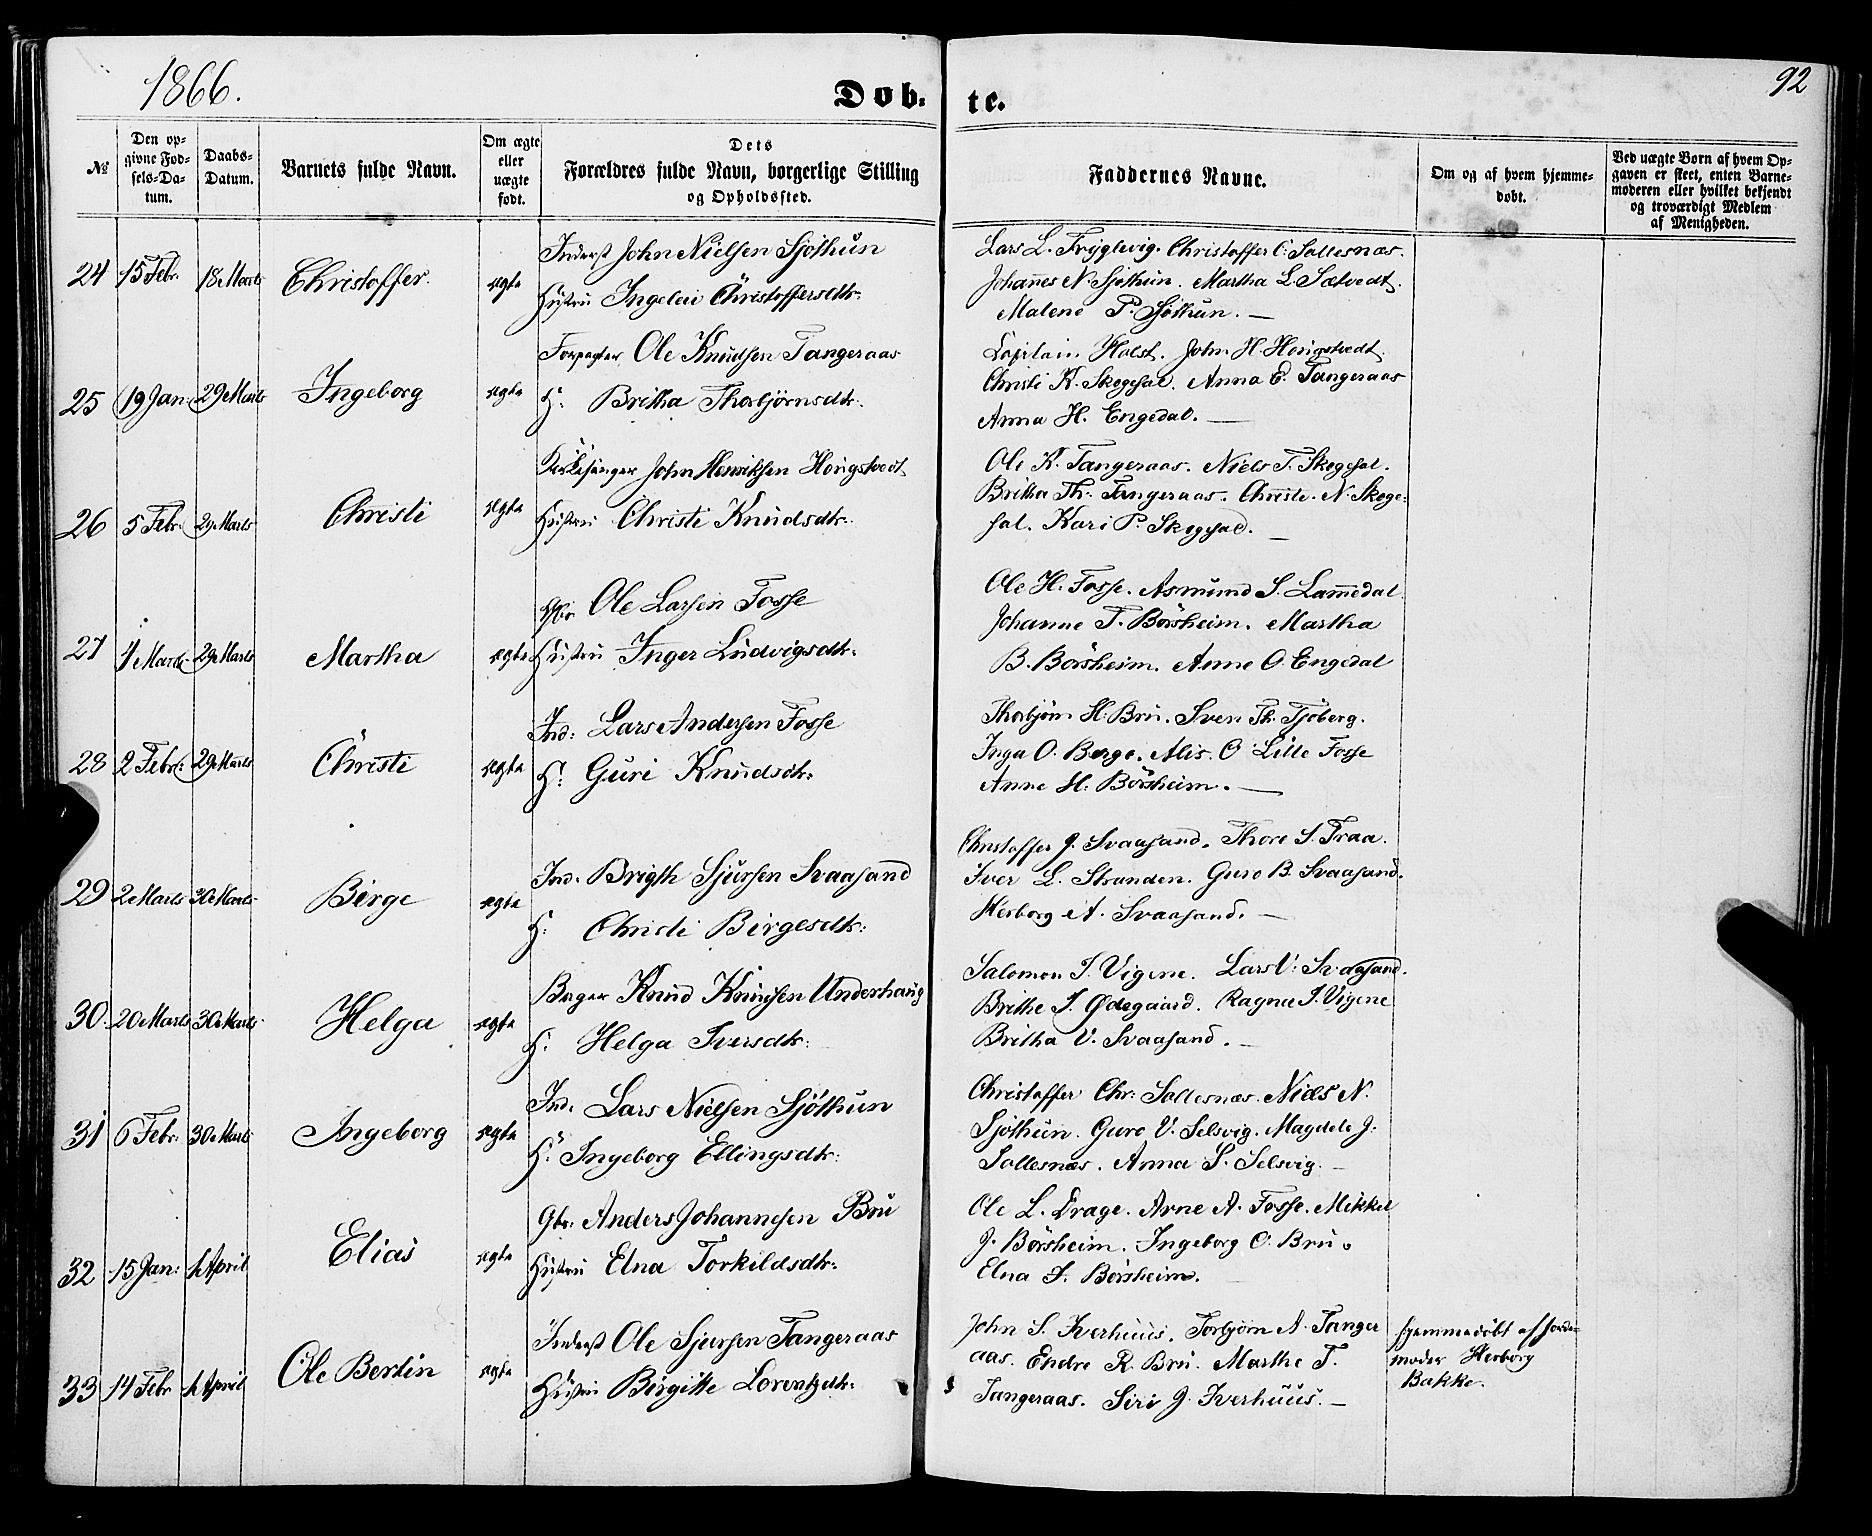 1866.
Døb- te.
92
№
Den opgivne Fødsels-Datum.
Daabs-Datum.
Barnets fulde Navn.
Om ægte eller uægte født.
Dets Forældres fulde Navn, borgerlige Stilling og Opholdssted.
Faddernes Navne.
Om og af hvem hjemmedøbt.
Ved uægte Børn af hvem Opgaven er skeet, enten Barnemoderen eller hvilket bekjendt og troværdigt Medlem af Menigheden.
24 15 Febr. 18 Marts Christoffer. ægte
Inderst John Nielsen Sjøthun
Hustru Ingeleiv Christoffersdtr:
Lars L. Tryglevig. Christoffer C. Sallesnæs.
Johannes N. Sjøthun. Martha L. Sætvedt.
Malene P. Sjøthun. —
25 19 Jan: 29 Marts Ingeborg ægte
Forpagter Ole Knudsen Tangeraas
H. Britha Thorbjørnsdtr.
Capitain Holst. John H. Hougstvedt.
Christi K. Skogesal. Anna E. Tangeraas
Anna H. Engedal. —
26 5 Febr. 29 Marts Christi ægte
Kirkesanger John Henriksen Hougstvedt
Hustru Christi Knudsdtr.
Ole K. Tangeraas. Niels T. Skogesal.
Britha Th: Tangeraas. Christe. N. Skoge-
sal. Kari P. Skogesal. —
27 1 Marts 29 Marts Martha ægte
Gbr. Ole Larsen Fosse
Hustru Inger Ludvigsdtr.
Ole H. Fosse. Asmund S. Lammedal
Johanne T. Börsheim. Martha
B. Börsheim. Anne O. Engedal
28 2 Febr: 29 Marts Christi ægte
Ind: Lars Andersen Fosse
H. Guri Knudsdtr.
Thorbjørn H. Bru. Sven Th. Tjoberg.
Inga O. Berge. Alis. O. Lille Fosse
Anne H. Börsheim. —
29 2 Marts 30 Marts Birge ægte
Ind. Brigth Sjursen Svaasand
H: Christi Birgesdtr:
Christoffer J. Svaasand. Thore S. Traa.
Iver L. Stranden. Guro B. Svaasand.
Herborg A. Svaasand. —
30. 20 Marts 30 Marts Helga ægte
Bager Knud Knudsen Underhaug
H. Helga Iversdtr:
Salomon I. Vigene. Lars V. Svaasand.
Brithe I. Ødegaard. Ragna I. Vigene
Britha V. Svaasand. —
31 6 Febr: 30 Marts Ingeborg ægte
Ind. Lars Nielsen Sjöthun
H. Ingeborg Ellingsdtr:
Christoffer Chr: Sallesnæs. Niels N.
Sjöthun. Guro V. Selsvig. Magdele J.
Sallesnæs. Anna S. Selsvig. —
32 15 Jan: 1 April Elias ægte
Gbr: Anders Johannesen Bru
Hustru Elna Torkildsdtr.
Ole L. Drage. Arne A. Fosse. Mikkel
J. Börsheim. Ingeborg O. Bru.
Elna I. Börsheim.
33 14 Febr 1 April Ole Bertin ægte
Inderst Ole Sjursen Tangeraas
Hustru Birgitte Lorentzdtr.
John S. Iverhuus. Torbjørn A. Tanger
aas. Endre R. Bru. Marthe T.
Tangeraas. Siri J. Iverhuus. —
hjemmedøbt af Jorde-
moder Herborg
Bakke.